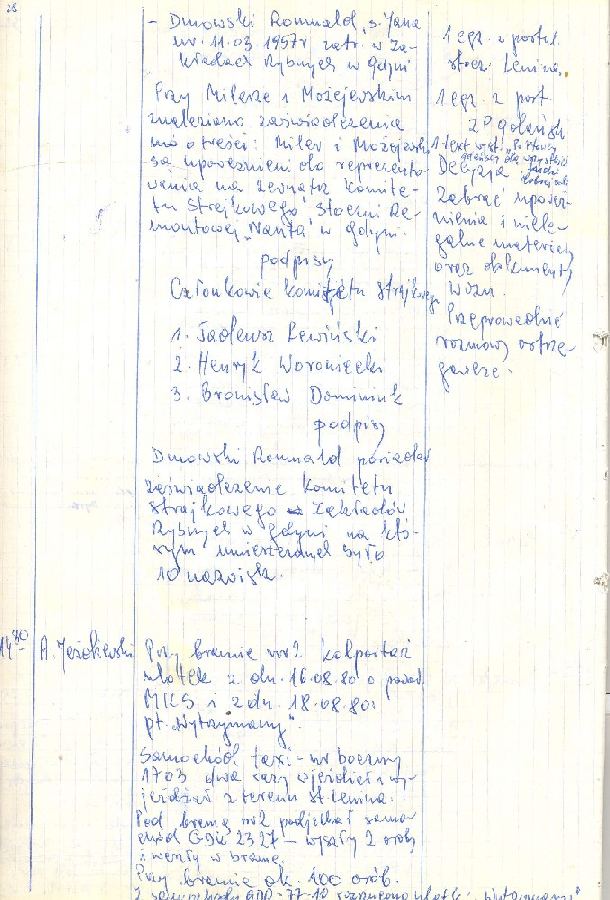 28
- Dmowski Romuald, s. Jana
ur. 11.03 1957r zatr. w Za-
kładach Rybnych w Gdyni
Przy Milerze i Możejewskim
znaleziono zaświadczenia
o treści: Miler i Możejewski
są upoważnieni do reprezento-
wania na zewnątrz Komite-
tu Strajkowego Stoczni Re-
montowej „Nauta" w Gdyni.
podpisy
Członkowie Komitetu Strajkowego
1. Tadeusz Lewiński
2. Henryk Woroniecki
3. Bronisław Dominik
podpisy
Dmowski Romuald posiadał
zaświadczenie Komitetu
Strajkowego Zakładów
Rybnych w Gdyni na któ-
rym umieszczonych było
10 nazwisk.
1 egz. z postul.
stocz. Lenina.
1 egz. z port.
ZP Gdańsk
1 text
Decyzja
Zabrać upoważ-
nienia i niele-
galne materiały
oraz dokumenty
wozu.
Przeprowadzić
rozmowy ostrze-
gawcze.
14 30
A. Jeżokiewski
Przy bramie nr 2 kolportaż
ulotek z dn. 16.08.80 o powoł.
MKS i z dn. 18.08.80r
pt. „Wytrzymamy".
Samochód taxi - nr boczny
1703 dwa razy wjeżdżał i wy-
jeżdżał z terenu st. Lenina.
Pod bramę nr 2 podjechał samo-
chód GDK 2327 - wyszły 2 osoby
i weszły w bramę.
Przy bramie ok. 400 osób.
Z samochodu GDD-77-10 rozrzucono ulotki „Wytrzymamy"